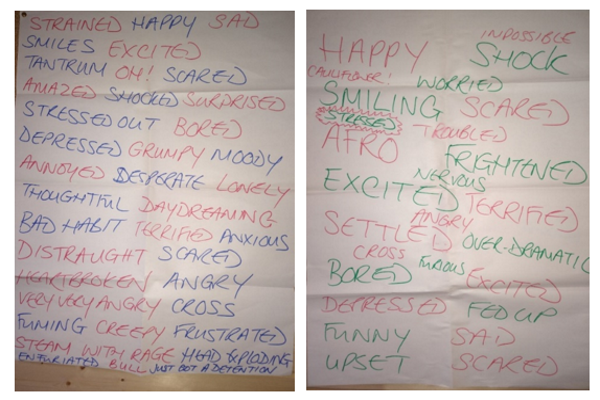 STRAINED HAPPY SAD
SMILES EXCITED
TANTRUM OH! SCARED
AMAZED SHOCKED SURPRISED
STRESSED OUT BORED
DEPRESSED GRUMPY MOODY
ANNOYED DESPERATE LONELY
THOUGHTFUL DAYDREAMING
BAD HABIT TERRIFIED ANXIOUS
DISTRAUGHT SCARED
HEARTBROKEN ANGRY
VERY VERY ANGRY CROSS
FUMING CREEPY FRUSTRATED
STEAM WITH RAGE HEAD EXPLODING
ENFURIATED BULL JUST GOT A DETENTION
INPOSSIBLE
HAPPY SHOCK
CAULIFLOWER!
WORRIED
SMILING SCARED
STRESSED
TROUBLED
AFRO
FRIGHTENED
NERVOUS
EXCITED TERRIFIED
ANGRY
SETTLED
OVER-DRAMATIC
CROSS
FURIOUS
BORED EXCITED
DEPRESSED FED UP
FUNNY SAD
UPSET SCARED